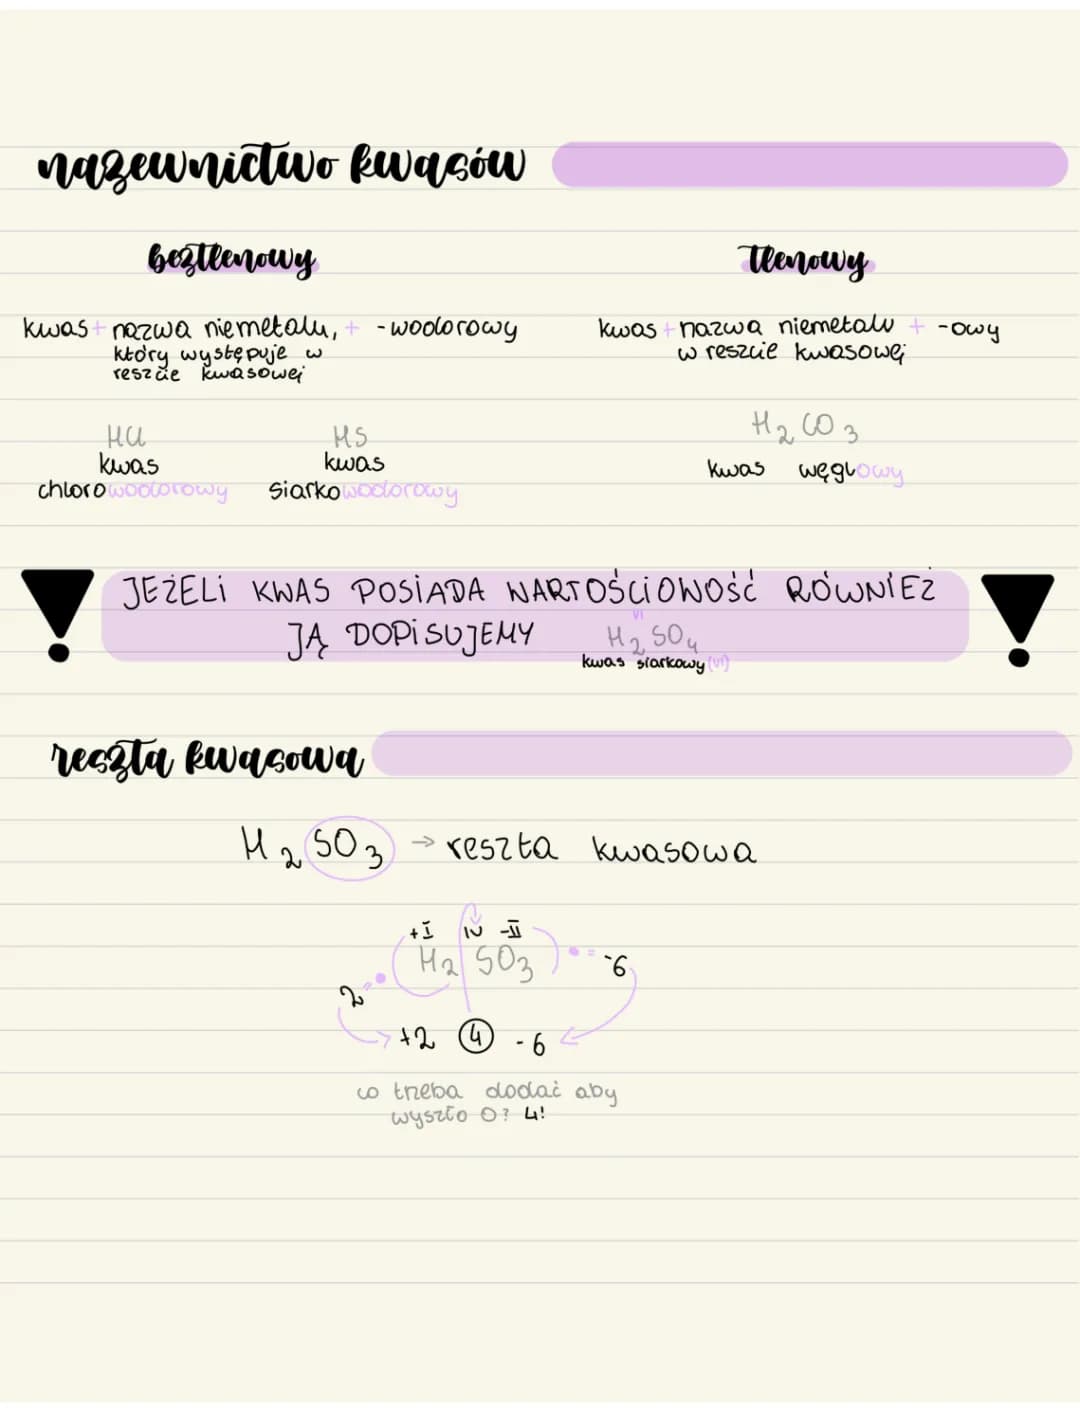 nazewnictwo kwasów
beztlenowy
kwas + nazwa niemetalu, + -wodorowy
który występuje w
reszcie kwasowej
HCl
kwas
chlorowodorowy
HS
kwas
siarkowodorowy
tlenowy
kwas + nazwa niemetalu + -owy
w reszcie kwasowej
H2CO3
kwas węglowy
! JEŻELI KWAS POSIADA WARTOŚCIOWOŚĆ RÓWNIEŻ !
JĄ DOPISUJEMY
VI
H2SO4
kwas siarkowy (VI)
reszta kwasowa
H2SO3 → reszta kwasowa
+I IV -II
H2SO3 • = -6
2 = •
+2 4 -6
co trzeba dodać aby
wyszło 0? 4!